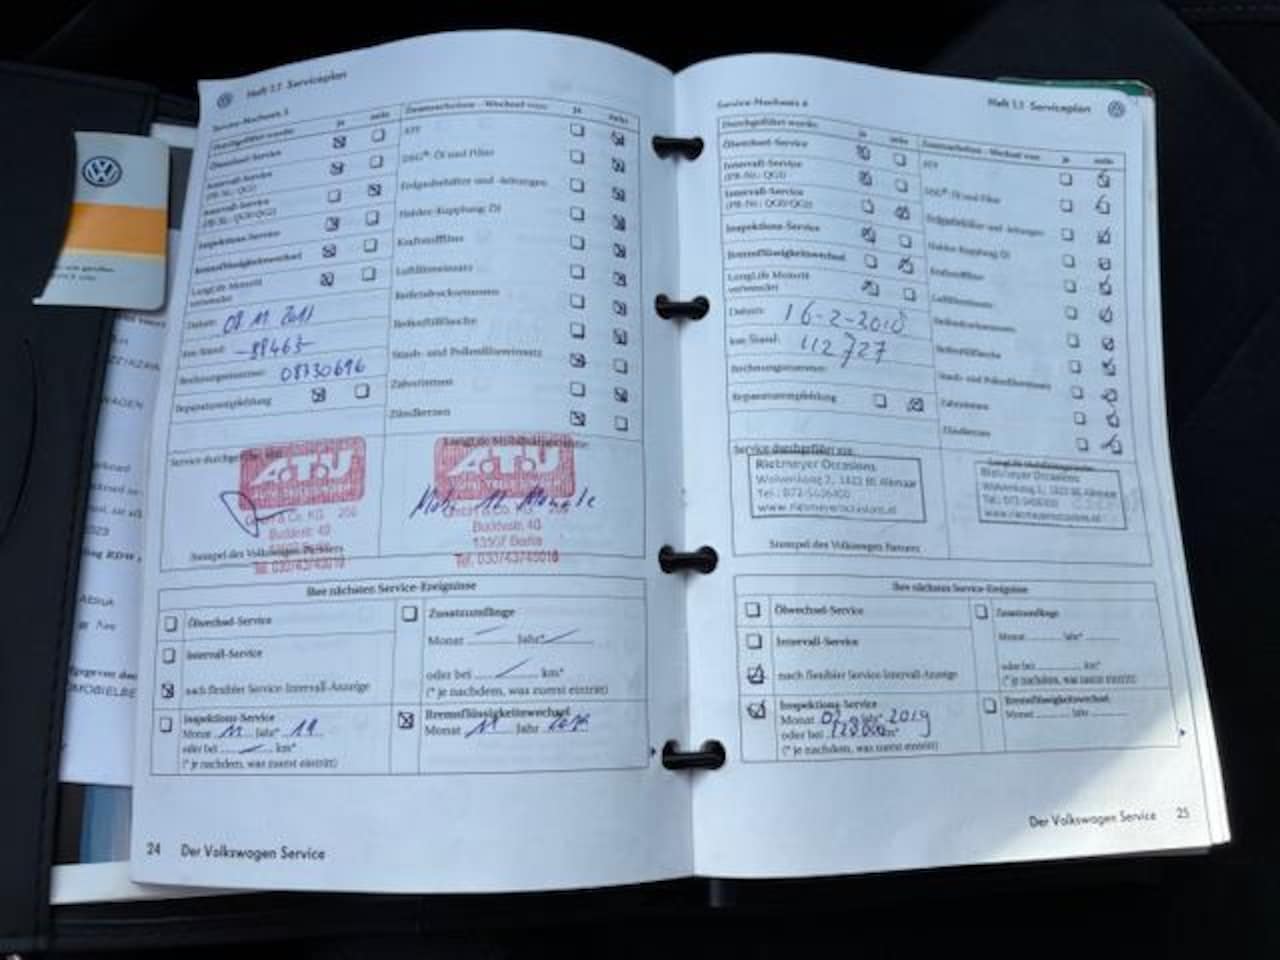 Heft 1.1 Serviceplan
Service-Nachweis 5
Durchgeführt wurde: ja nein
Ölwechsel-Service
Intervall-Service
(PR-Nr.: QG1)
Intervall-Service
(PR-Nr.: QG0/QG2)
Inspektions-Service
Bremsflüssigkeitswechsel
LongLife Motoröl
verwendet
Datum:
km-Stand: 88463
Rechnungsnummer: 08730696
Reparaturempfehlung
Zusatzarbeiten - Wechsel von: ja nein
ATF
DSG®-Öl und Filter
Erdgasbehälter und -leitungen
Haldex-Kupplung: Öl
Kraftstofffilter
Luftfiltereinsatz
Reifendichtmittel
Reifenfüllflasche
Staub- und Pollenfiltereinsatz
Zahnriemen
Zündkerzen
Service durchgeführt
A.T.U
GmbH & Co. KG 206
Tel. 030/43745019
Stempel des Volkswagen Partners
LongLife Mobilitätsgarantie
A.T.U
Mob. 12 Monate
13507 Berlin
Tel. 030/43745019
Ihre nächsten Service-Ereignisse
Ölwechsel-Service
Intervall-Service
nach flexibler Service-Intervall-Anzeige
Inspektions-Service
Monat 11 Jahr*
oder bei km*
(* je nachdem, was zuerst eintritt)
Zusatzumfänge
Monat Jahr*
oder bei km*
(* je nachdem, was zuerst eintritt)
Bremsflüssigkeitswechsel
Monat 11 Jahr
24 Der Volkswagen Service
Service-Nachweis 6
Heft 1.1 Serviceplan
Durchgeführt wurde: ja nein
Ölwechsel-Service
Intervall-Service
(PR-Nr.: QG1)
Intervall-Service
(PR-Nr.: QG0/QG2)
Inspektions-Service
Bremsflüssigkeitswechsel
LongLife Motoröl
verwendet
Datum: 16-2-2018
km-Stand: 112727
Rechnungsnummer:
Reparaturempfehlung
Zusatzarbeiten - Wechsel von: ja nein
ATF
DSG®-Öl und Filter
Erdgasbehälter und -leitungen
Haldex-Kupplung: Öl
Kraftstofffilter
Luftfiltereinsatz
Reifendichtmittel
Reifenfüllflasche
Staub- und Pollenfiltereinsatz
Zahnriemen
Zündkerzen
Service durchgeführt von
Rietmeyer Occasions
Wolvenkoog 2, 1822 BE Alkmaar
Tel.: 072-5406400
www.rietmeyeroccasions.nl
Stempel des Volkswagen Partners
Rietmeyer Occasions
Wolvenkoog 2, 1822 BE Alkmaar
Tel.: 072-5406400
www.rietmeyeroccasions.nl
Ihre nächsten Service-Ereignisse
Ölwechsel-Service
Intervall-Service
nach flexibler Service-Intervall-Anzeige
Inspektions-Service
Monat 02 2019
oder bei km*
(* je nachdem, was zuerst eintritt)
Zusatzumfänge
Monat Jahr*
oder bei km*
(* je nachdem, was zuerst eintritt)
Bremsflüssigkeitswechsel
Monat Jahr
Der Volkswagen Service 25